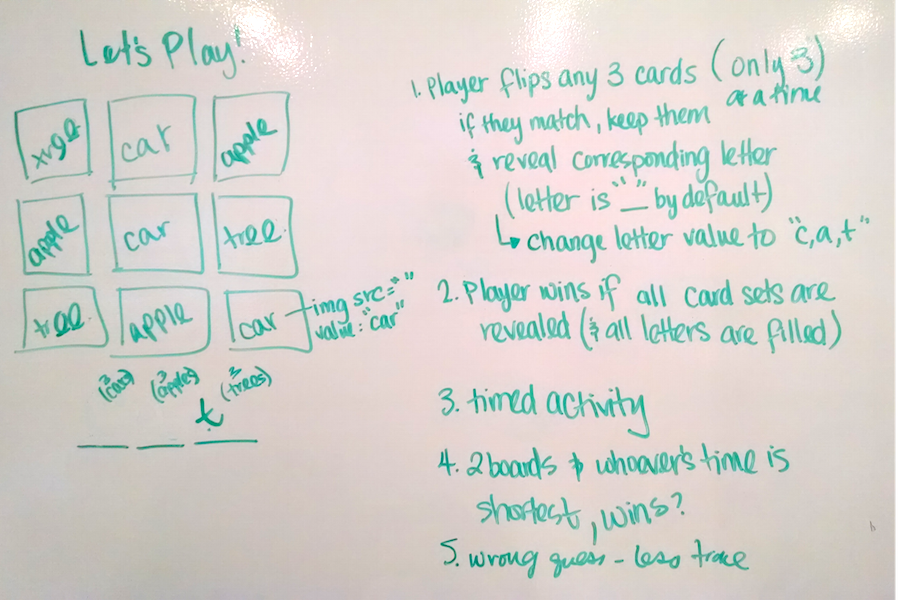 Let's Play!
tree
car
apple
apple
car
tree
tree
apple
car
img src=" "
value: "car"
3
(cars)
3
(apples)
3
(trees)
t
1. Player flips any 3 cards (only 3)
at a time
if they match, keep them
& reveal corresponding letter
(letter is "_" by default)
↳ change letter value to "c,a,t"
2. Player wins if all card sets are
revealed (& all letters are filled)
3. timed activity
4. 2 boards & whoever's time is
shortest, wins?
5. wrong guess - less